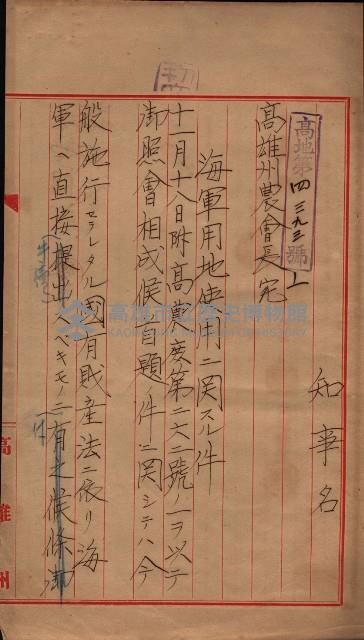 高地第四三九三號ノ一
知事名
高雄州農會長宛
海軍用地使用ニ関スル件
十一月十八日附高農度第二六二號ノ一ヲ以テ
御照會相成候首題ノ件ニ関シテハ今
般施行セラレタル國有財産法ニ依リ海
軍ヘ直接提出スベキモノニ有之候條御
高雄市立歷史博物館
KAOHSIUNG MUSEUM OF HISTORY
高雄州